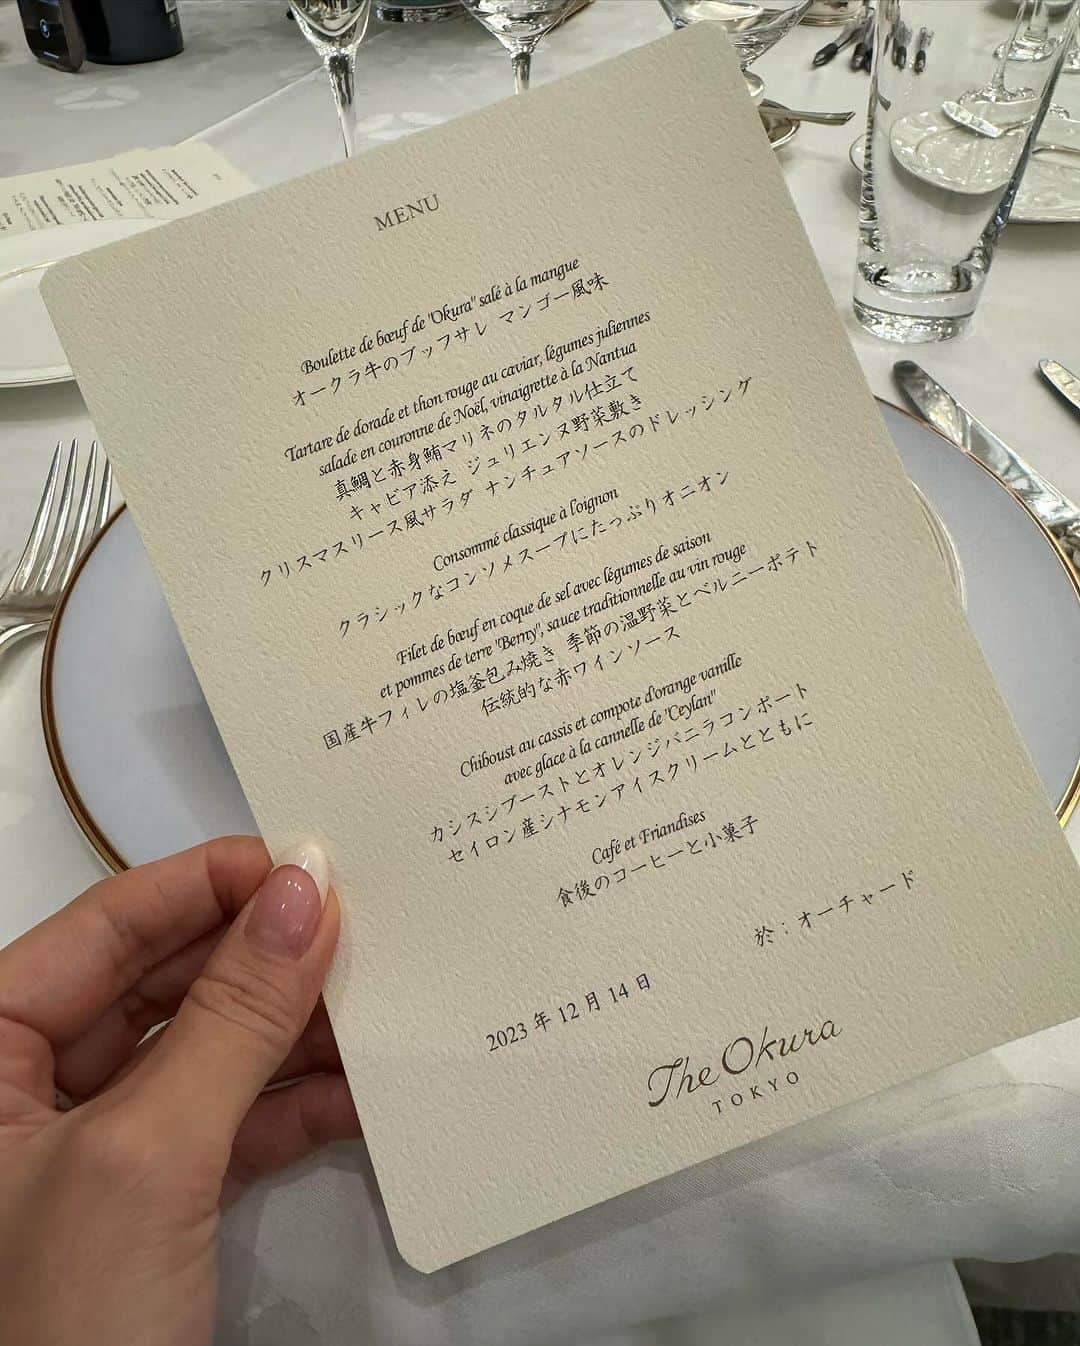 MENU
Boulette de bœuf de "Okura" salé à la mangue
オークラ牛のブッフサレ マンゴー風味
Tartare de dorade et thon rouge au caviar, légumes juliennes
salade en couronne de Noël, vinaigrette à la Nantua
真鯛と赤身鮪マリネのタルタル仕立て
キャビア添え ジュリエンヌ野菜敷き
クリスマスリース風サラダ ナンチュアソースのドレッシング
Consommé classique à l'oignon
クラシックなコンソメスープにたっぷりオニオン
Filet de bœuf en coque de sel avec légumes de saison
et pommes de terre "Berny", sauce traditionnelle au vin rouge
国産牛フィレの塩釜包み焼き 季節の温野菜とベルニーポテト
伝統的な赤ワインソース
Chiboust au cassis et compote d'orange vanille
avec glace à la cannelle de "Ceylan"
カシスシブーストとオレンジバニラコンポート
セイロン産シナモンアイスクリームとともに
Café et Friandises
食後のコーヒーと小菓子
於：オーチャード
2023 年 12 月 14 日
The Okura
TOKYO